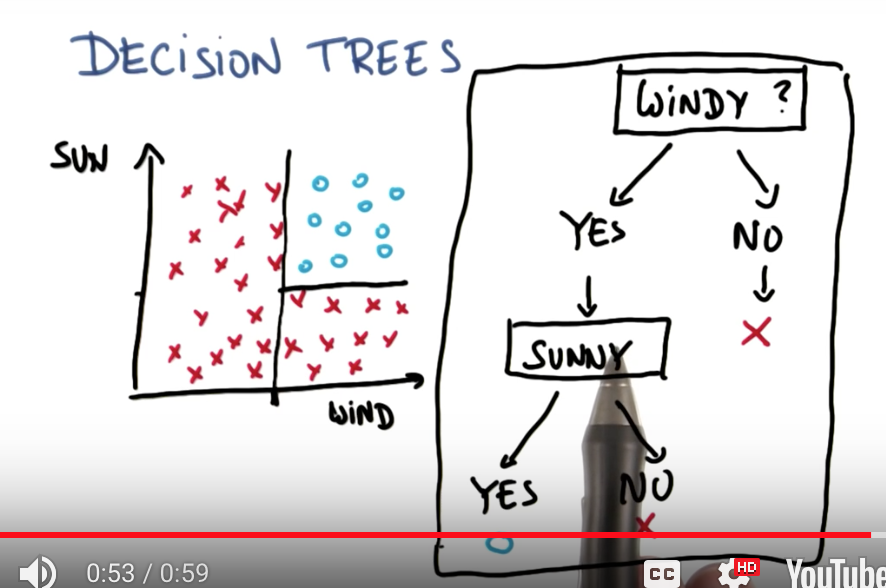 DECISION TREES
SUN
WIND
WINDY ?
YES
NO
SUNNY
YES
NO
0:53 / 0:59
CC
HD
YouTube